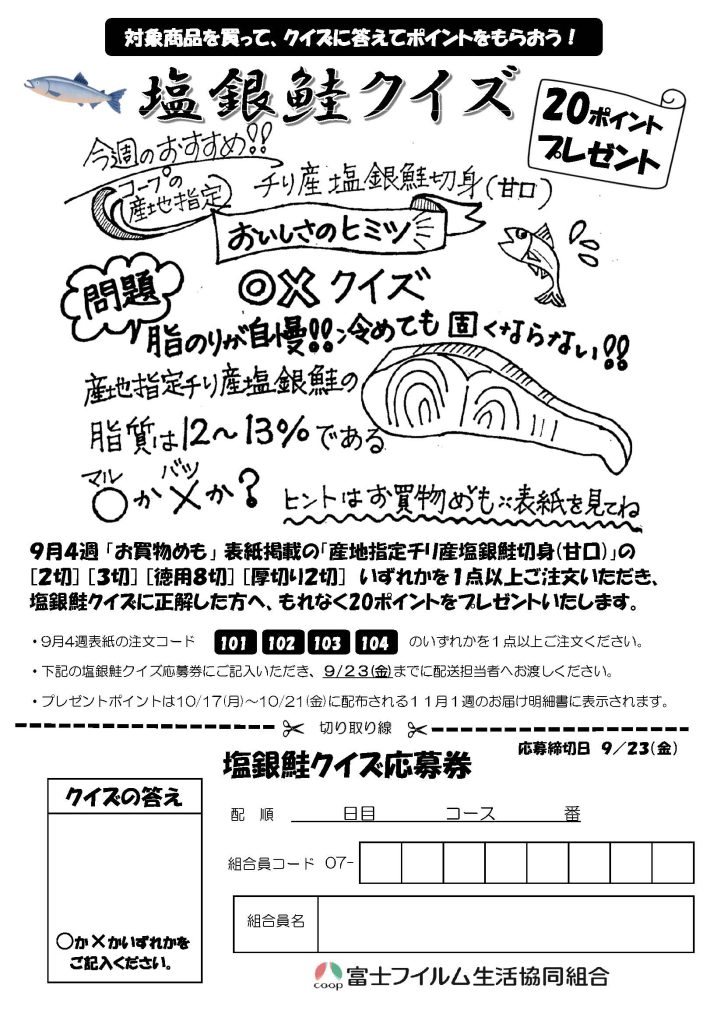 対象商品を買って、クイズに答えてポイントをもらおう！
塩銀鮭クイズ
20ポイント
プレゼント
今週のおすすめ!!
コープの
産地指定
チリ産塩銀鮭切身(甘口)
おいしさのヒミツ
問題
○×クイズ
脂のりが自慢!!冷めても固くならない!!
産地指定チリ産塩銀鮭の
脂質は12～13%である
マル バツ
○か×か?
ヒントはお買物めも※表紙を見てね
9月4週「お買物めも」表紙掲載の「産地指定チリ産塩銀鮭切身(甘口)」の
[2切] [3切] [徳用8切] [厚切り2切] いずれかを1点以上ご注文いただき、
塩銀鮭クイズに正解した方へ、もれなく20ポイントをプレゼントいたします。
・9月4週表紙の注文コード 101 102 103 104 のいずれかを1点以上ご注文ください。
・下記の塩銀鮭クイズ応募券にご記入いただき、9/23(金)までに配送担当者へお渡しください。
・プレゼントポイントは10/17(月)～10/21(金)に配布される11月1週のお届け明細書に表示されます。
切り取り線
応募締切日 9/23(金)
塩銀鮭クイズ応募券
クイズの答え
○か×かいずれかを
ご記入ください。
配 順 日目 コース 番
組合員コード 07-
組合員名
coop 富士フイルム生活協同組合